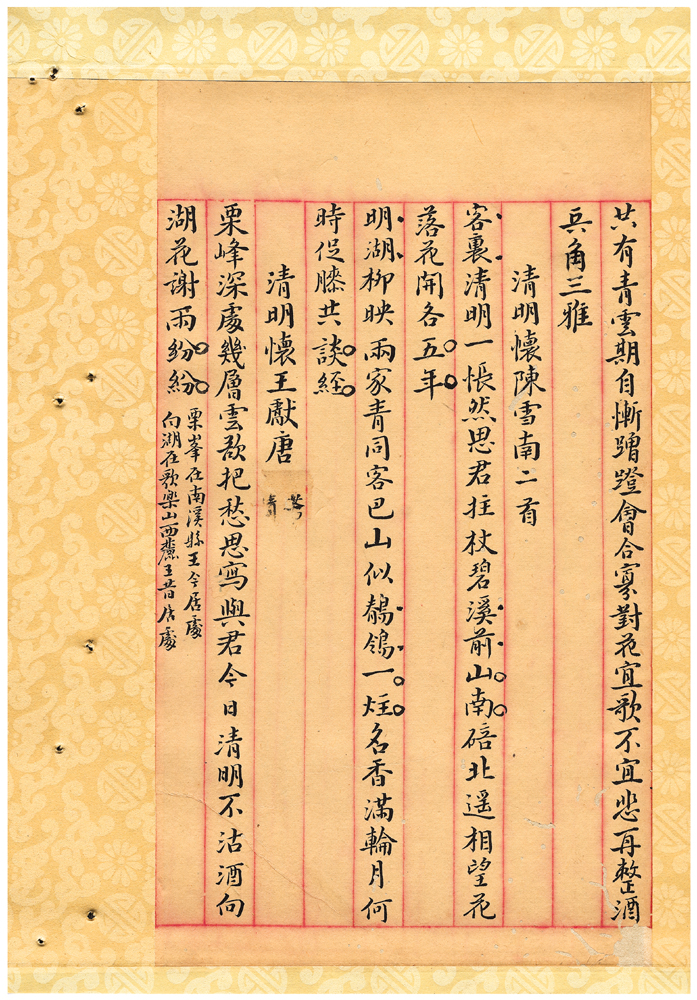 共有青雲期自慚蹭蹬會合寡對花宜歌不宜悲再整酒
兵角三雅
清明懷陳雪南二首
客裏清明一悵然思君拄杖碧溪前山南碚北遥相望花
落花開各五年
明湖柳映兩家青同客巴山似鶺鴒一炷名香滿輪月何
時促膝共談經
清明懷王獻唐
栗峰深處幾層雲欲把愁思寫與君今日清明不沽酒向
湖花謝雨紛紛
栗峯在南溪縣王今居處
向湖在歌樂山西麓王昔居處